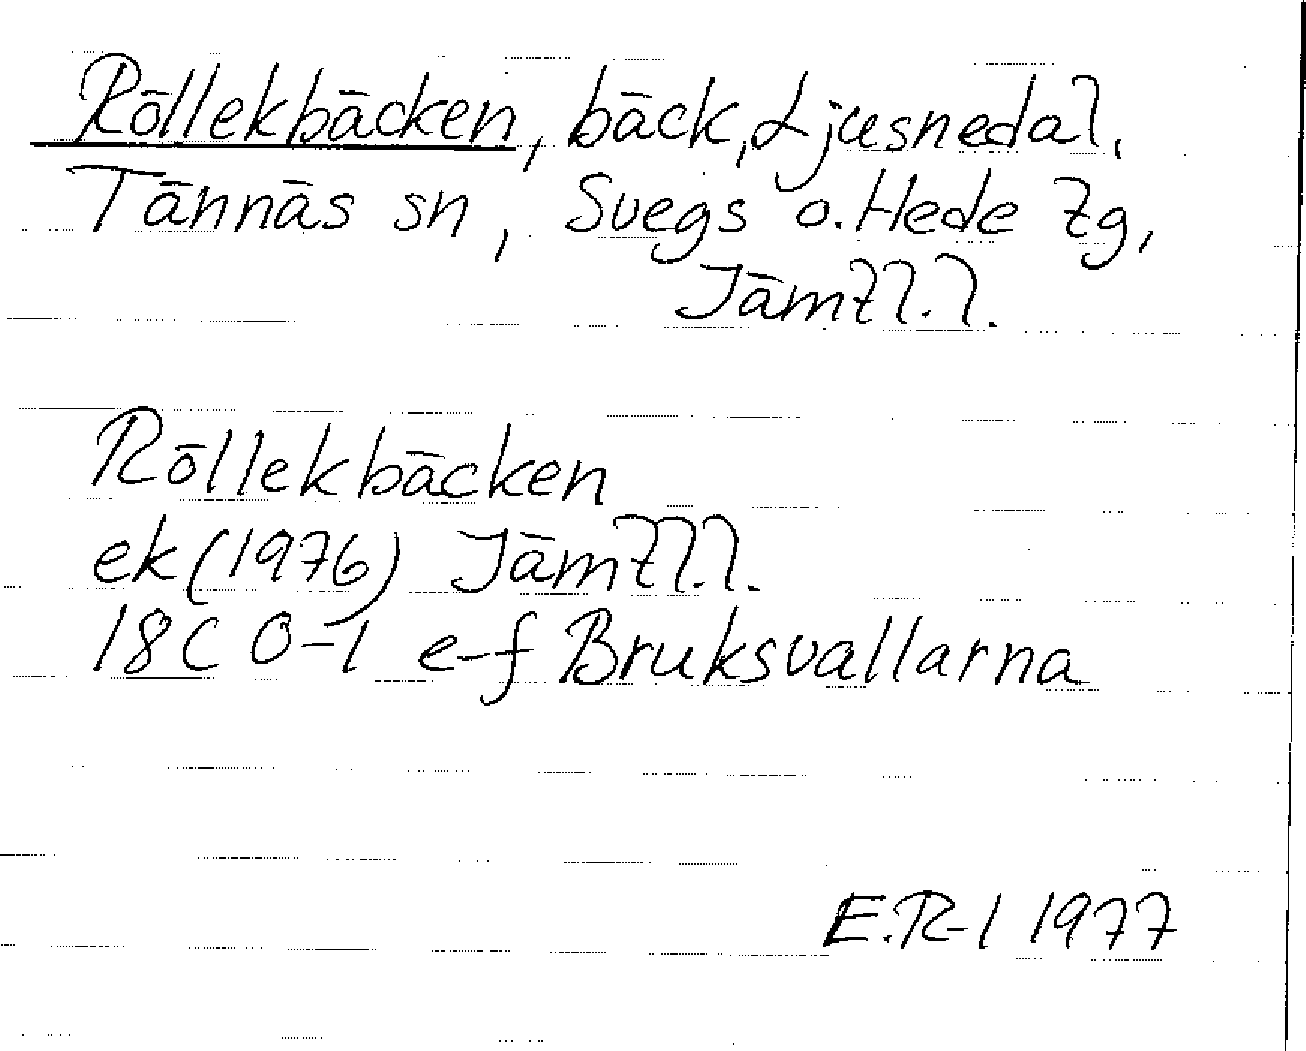 Röllekbäcken, bäck, Ljusnedal.
Tännäs sn, Svegs o. Hede tg,
Jämtl. l.
Röllekbäcken
ek (1976) Jämtl. l.
18C 0-1 e-f Bruksvallarna
E.R-l 1977